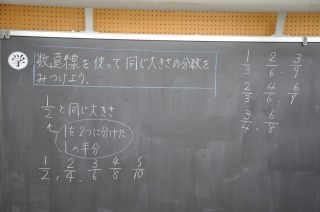 学
数直線を使って同じ大きさの分数を
みつけよう。
1/2 と同じ大きさ
1を2つに分けた
1の半分
1/2, 2/4, 3/6 4/8 5/10
1/3 2/6, 3/9
2/3 4/6, 6/9
3/4, 6/8